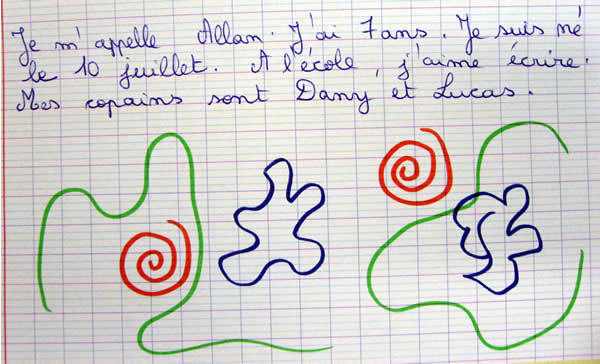 Je m'appelle Allan. J'ai 7 ans. Je suis né
le 10 juillet. A l'école, j'aime écrire.
Mes copains sont Dany et Lucas.